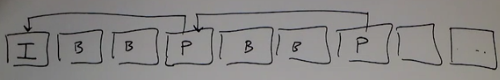 I B B P B B P ..